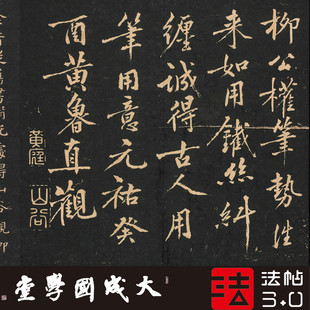 柳公權筆勢往
来如用鐵絲糾
纏誠得古人用
筆用意元祐癸
酉黄魯直觀
黄庭
山谷
大成國學堂
法
法帖
3.0